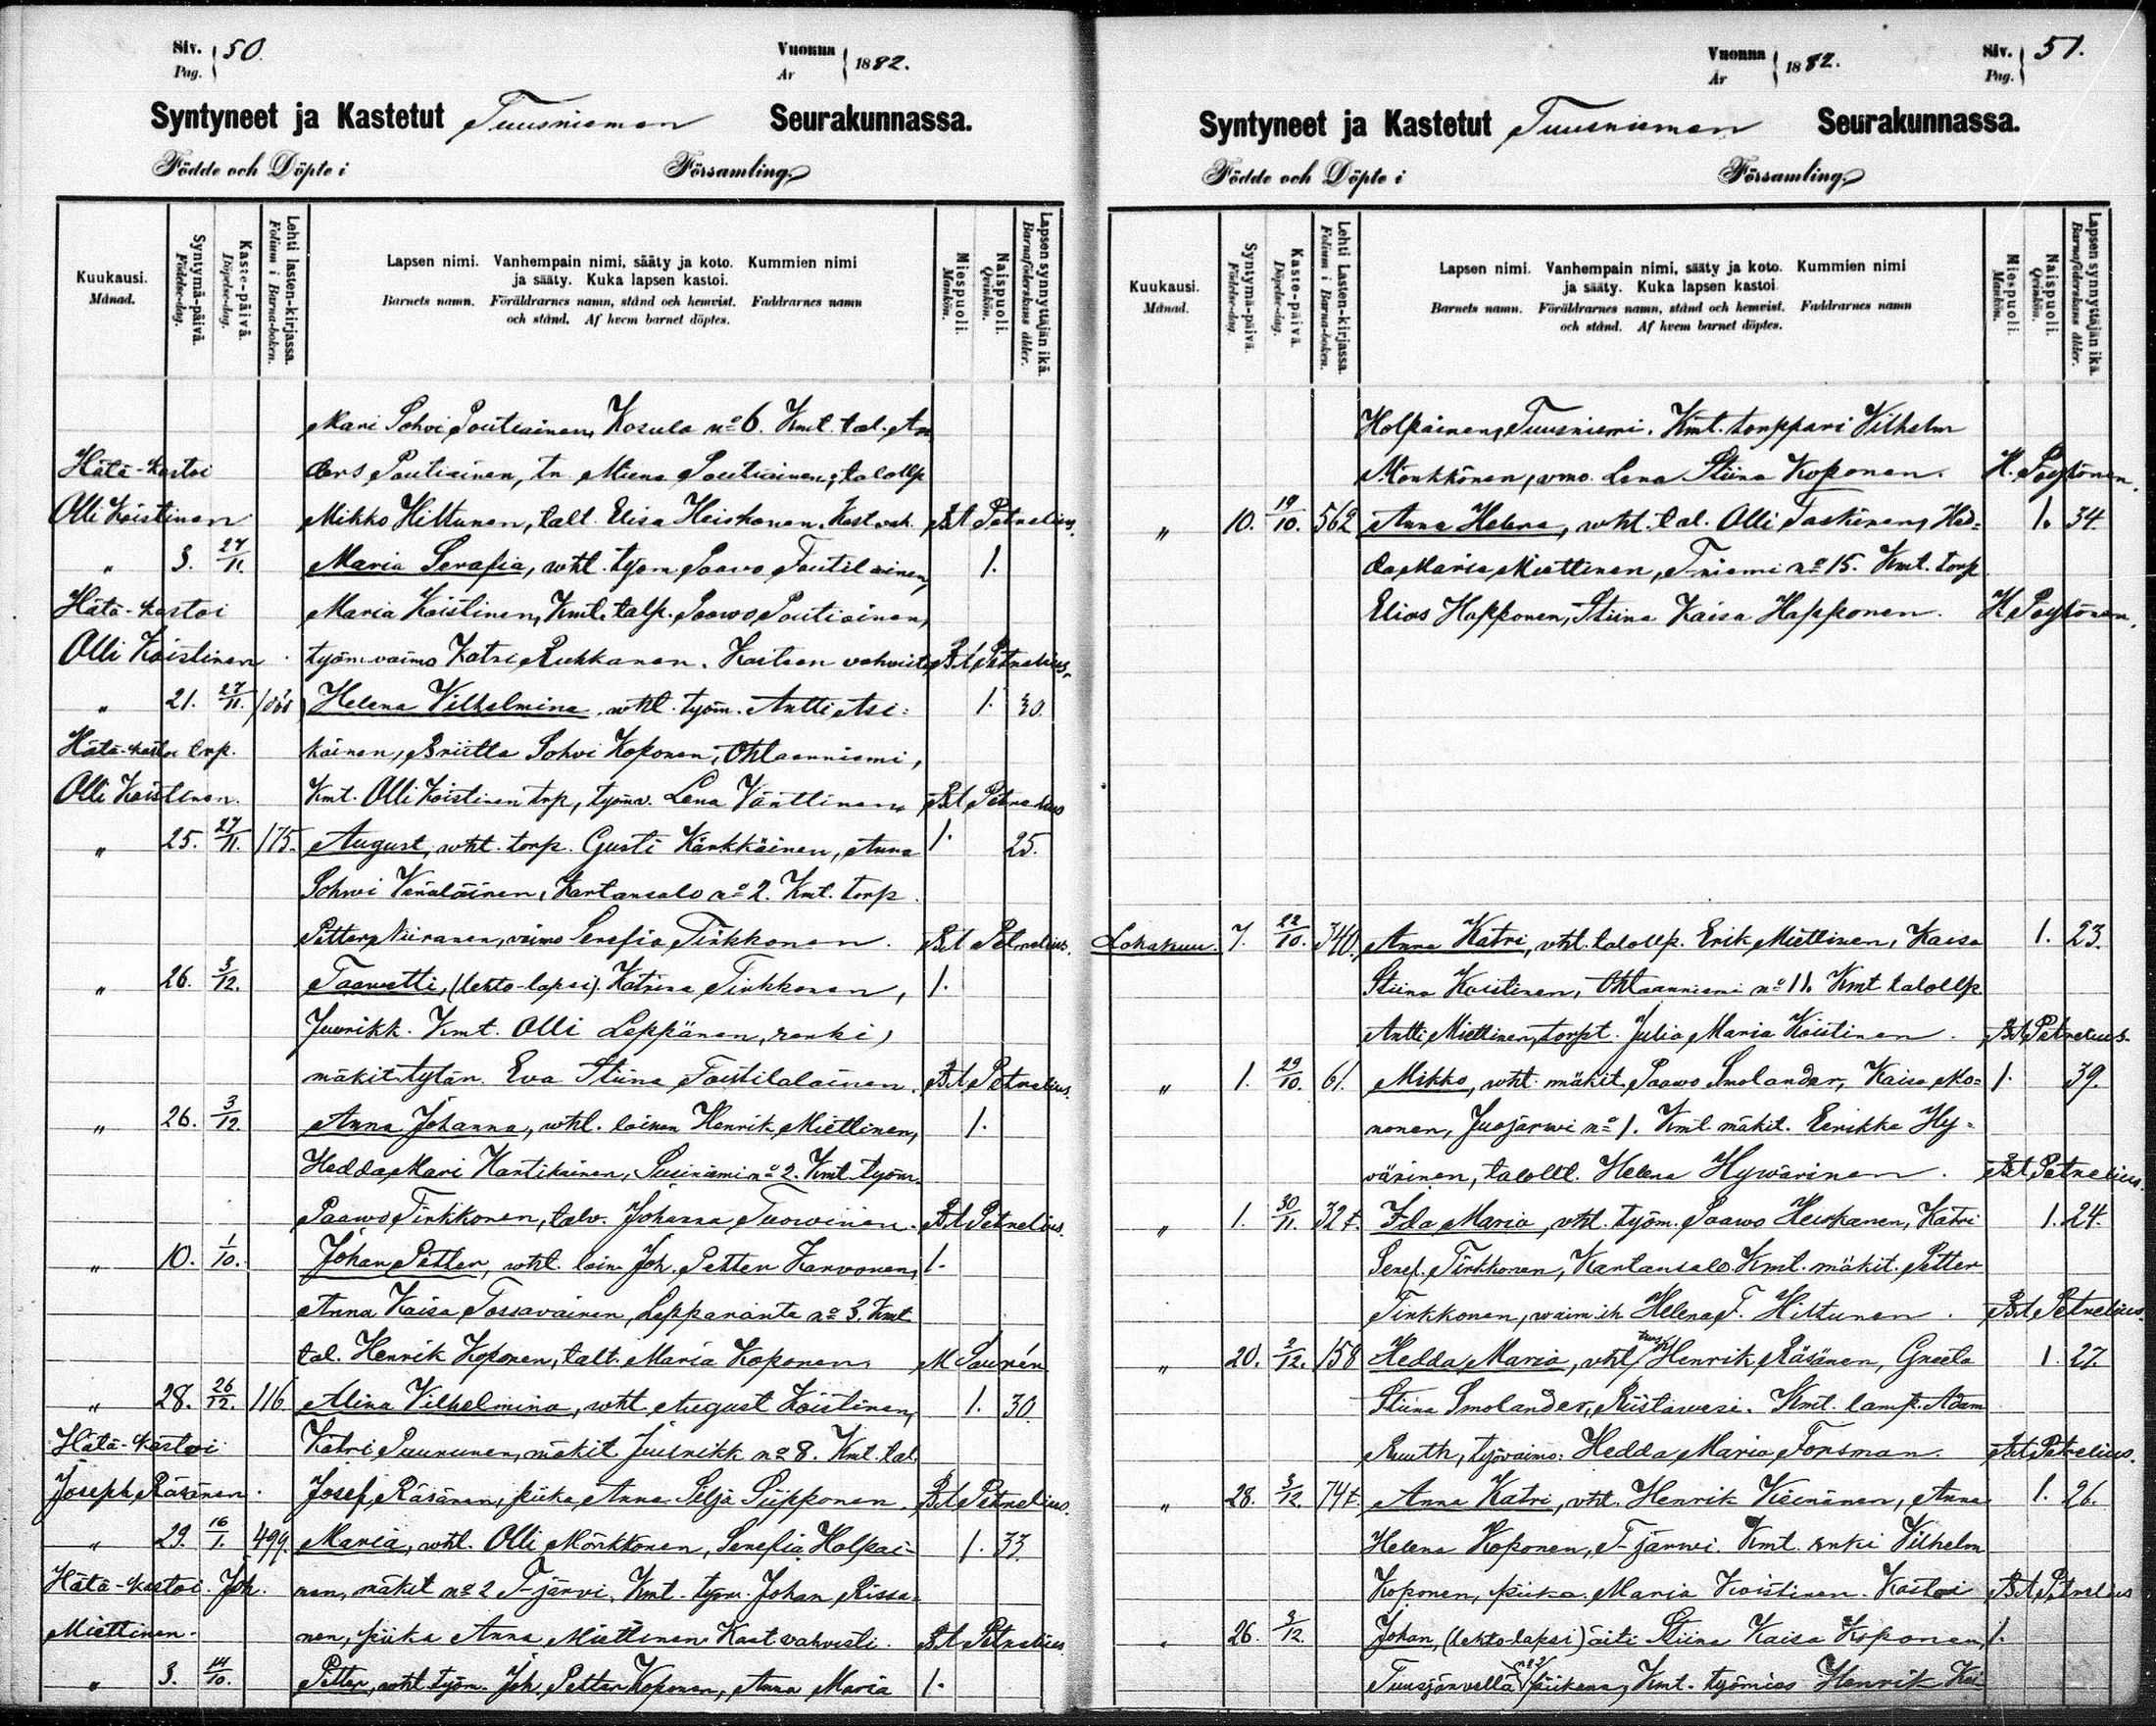 Siv. 50.
Pag.
Vuonna 1882.
År
Syntyneet ja Kastetut Tuusniemen Seurakunnassa.
Födde och Döpte i Församling.
Kuukausi.
Månad.
Syntymä-päivä.
Födelse-dag.
Kaste-päivä.
Döpelse-dag.
Lehti lasten-kirjassa.
Folium i Barna-boken.
Lapsen nimi. Vanhempain nimi, sääty ja koto. Kummien nimi
ja sääty. Kuka lapsen kastoi.
Barnets namn. Föräldrarnes namn, stånd och hemvist. Faddrarnes namn
och stånd. Af hvem barnet döptes.
Miespuoli.
Mankön.
Naispuoli.
Qvinkön.
Lapsen synnyttäjän ikä.
Barnaföderskans ålder.
Mari Sohvi Poutiainen, Kosula no 6. Kmt. tal. An
Hätä-kastoi ders Poutiainen, tn Miina Poutiainen, talollp
Olli Koistinen Mikko Hiltunen, talt. Elisa Heiskanen. Kast vah. Bt Petrelius.
„ 3. 27/11. Maria Serafia, vht. työm Paavo 1.
Hätä-kastoi Maria Koistinen, Kmt. talp. Paavo Poutiainen,
Olli Koistinen. työm. vaimo Katri Rukkanen. Kasteen vahvisti Bt Petrelius.
„ 21. 27/11. Helena Vilhelmina vht. työm. Antti Asi= 1. 30.
Hätä-kastoi trp. kainen, Briitta Sohvi Koponen, Ohtaanniemi,
Olli Koistinen. Kmt. Olli Koistinen trp, työmv. Lena Vänttinen Bt Petrelius
„ 25. 27/11. 175. August, vht. torp. Gusti Kärkkäinen, Anna 1. 25.
Sohvi Venäläinen, Kartansalo no 2. Kmt. torp.
Petter Niiranen, vaimo Serefia Tirkkonen. Bt Petrelius.
„ 26. 3/12. Taavetti, (lehto-lapsi). Katrina Tirkkonen, 1.
Juurikk. Kmt. Olli Leppänen, renki,
mäkit. tytär. Eva Stiina Bt Petrelius.
„ 26. 3/12. Anna Johanna, vht. loinen Henrik Miettinen, 1.
Hedda Mari Hartikainen, Susiniemi no 2. Kmt. työm.
Paavo Tirkkonen, talv. Johanna Tuovinen. Bt Petrelius.
„ 10. 1/10. Johan Petter, vht. loin. Joh. Petter Karvonen, 1.
Anna Kaisa Tossavainen, Lepparanta no 3. Kmt
tal. Henrik Koponen, talt. Maria Koponen M Saurén
„ 28. 26/12. 116 Alina Vilhelmina, vht. August Koistinen, 1. 30.
Hätä-kastoi Katri Paununen, mäkit Juurikk no 8. Kmt. tal.
Joseph Räsänen. Josef Räsänen, piika Anna Silja Sipponen. Bt Petrelius.
„ 29. 16/1. 499. Maria, vht. Olli Mönkkönen, Serefia Holpai- 1. 33.
Hätä-kastoi Joh. nen, mäkit no 2 T-järvi. Kmt. työm. Johan Rissa-
Miettinen. nen, piika Anna Miettinen Kast vahvisti. Bt Petrelius
„ 3. 14/10. Petter, vht. työm. Joh. Petter Koponen, Anna Maria 1.
Vuonna 1882.
År
Siv. 51.
Pag.
Syntyneet ja Kastetut Tuusniemen Seurakunnassa.
Födde och Döpte i Församling.
Kuukausi.
Månad.
Syntymä-päivä.
Födelse-dag.
Kaste-päivä.
Döpelse-dag.
Lehti Lasten-kirjassa.
Folium i Barna-boken.
Lapsen nimi. Vanhempain nimi, sääty ja koto. Kummien nimi
ja sääty. Kuka lapsen kastoi.
Barnets namn. Föräldrarnes namn, stånd och hemvist. Faddrarnes namn
och stånd. Af hvem barnet döptes.
Miespuoli.
Mankön.
Naispuoli.
Qvinkön.
Lapsen synnyttäjän ikä.
Barnaföderskans ålder.
Holpainen, Tuusniemi. Kmt. torppari Vilhelm
Mönkkönen, vmo. Lena Stiina Koponen. H. Pöyhönen.
„ 10. 19/10. 562 Anna Helena, vht. tal. Olli Taskinen, Hed=
da Maria Miettinen, T niemi no 15. Kmt. torp 1. 34.
Elias Happonen, Stiina Kaisa Happonen. H. Pöyhönen.
Lokakuu. 7. 22/10. 340. Anna Katri, vht. talollp. Erik Miettinen, Kaisa 1. 23.
Stiina Koistinen, Ohtaanniemi no 11. Kmt talollp.
Antti Miettinen, torpt. Julia Maria Koistinen. Bt Petrelius.
„ 1. 29/10. 61. Mikko, vht. mäkit. Paavo Smolander, Kaisa Mo= 1. 39.
nonen, Juojärvi no 1. Kmt. mäkit. Eerikka Hy=
värinen, talollt. Helena Hyvärinen. Bt Petrelius.
„ 1. 30/11. 32 t. Ida Maria, vht. työm. Paavo Heiskanen, Katri 1. 24.
Seref. Tirkkonen, Kartansalo. Kmt. mäkit. Petter
Tirkkonen, vaim. ih. Helena F. Hiltunen. Bt Petrelius.
„ 20. 2/12. 158 Hedda Maria, vht. Henrik Räsänen, Greeta 1. 27.
Stiina Smolander, Riistavesi. Kmt. lamp. Adam
Ruuth, työvaimo: Hedda Maria Forsman. Bt Petrelius.
„ 28. 3/12. 74 t. Anna Katri, vht. Henrik Väänänen, Anna 1. 26.
Helena Koponen, T-järvi. Kmt. renki Vilhelm
Koponen, piika Maria Koistinen. Kastoi Bt Petrelius
„ 26. 3/12. Johan, (lehto-lapsi) äiti Stiina Kaisa Koponen, 1.
Tuusjärvellä no 2 piikana, Kmt. työmies Henrik Koi-